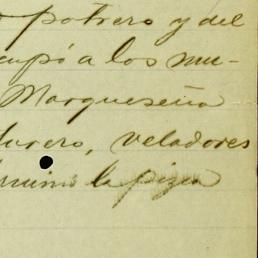 potrero y del
cupó a los mu-
Marqueseña
urero, veladores
la pizca